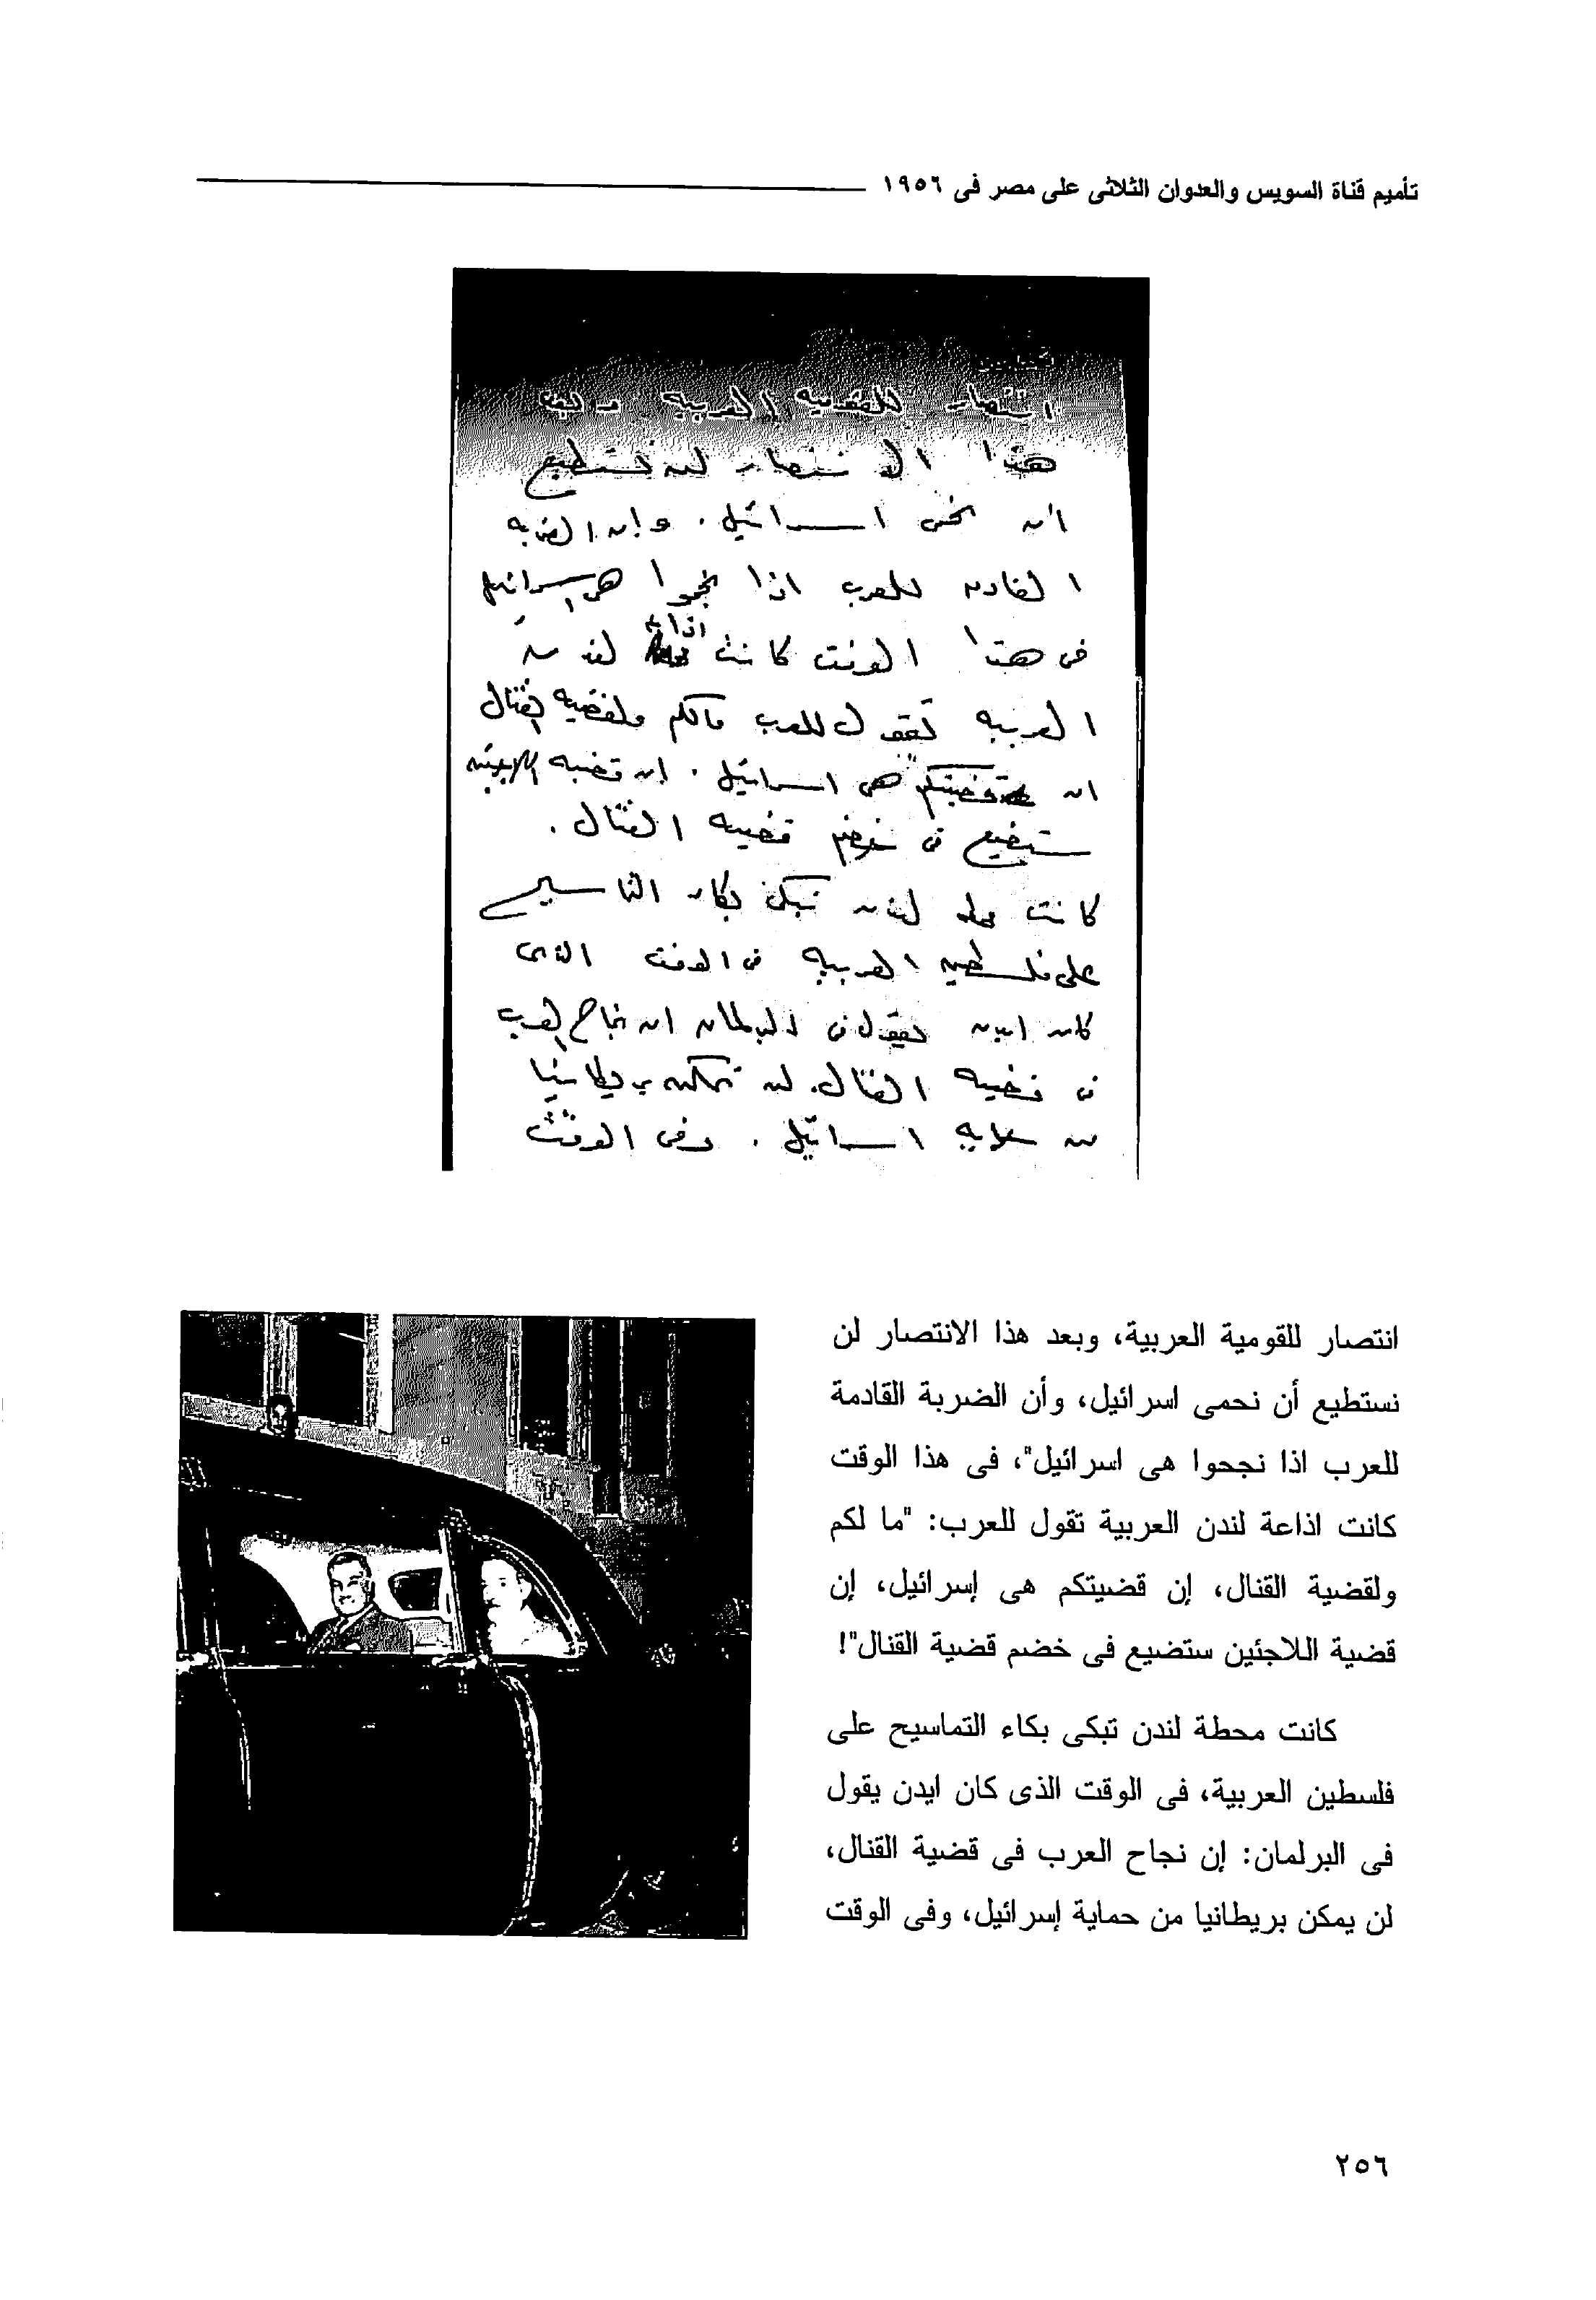 تأميم قناة السويس والعدوان الثلاثى على مصر فى ١٩٥٦
انتصار للقومية العربيه وبعد
هذا الانتصار لن نستطيع
أن نحمى اسرائيل. وإن الضربه
القادمه للعرب اذا نجحوا هى اسرائيل
فى هذا الوقت كانت اذاعة لندن
العربيه تقول للعرب مالكم ولقضيه القنال
ان قضيتكم هى اسرائيل. ان قضيه اللاجئين
ستضيع فى خضم قضيه القنال.
كانت محطه لندن تبكى بكاء التماسيح
على فلسطين العربيه فى الوقت الذى
كان ايدن يقول فى البرلمان ان نجاح العرب
فى قضيه القنال. لن تمكن بريطانيا
من حمايه اسرائيل. وفى الوقت
انتصار للقومية العربية، وبعد هذا الانتصار لن
نستطيع أن نحمى اسرائيل، وأن الضربة القادمة
للعرب اذا نجحوا هى اسرائيل"، فى هذا الوقت
كانت اذاعة لندن العربية تقول للعرب: "ما لكم
ولقضية القنال، إن قضيتكم هى إسرائيل، إن
قضية اللاجئين ستضيع فى خضم قضية القنال"!
كانت محطة لندن تبكى بكاء التماسيح على
فلسطين العربية، فى الوقت الذى كان ايدن يقول
فى البرلمان: إن نجاح العرب فى قضية القنال،
لن يمكن بريطانيا من حماية إسرائيل، وفى الوقت
٢٥٦